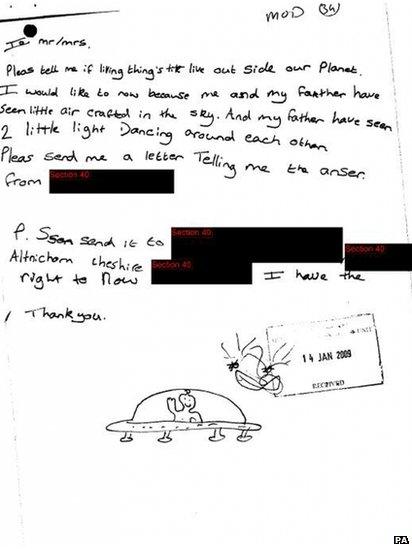 MOD
To mr/mrs.
Pleas tell me if living thing's live out side our Planet.
I would like to now because me and my farther have
seen little air crafted in the sky. And my father have seen
2 little light Dancing around each other.
Pleas send me a letter Telling me the anser
from Section 40
P. S send it to Section 40
Altrichom cheshire Section 40 Section 40
right to now I have the
Thankyou.
UNIT
14 JAN 2009
RECEIVED
PA